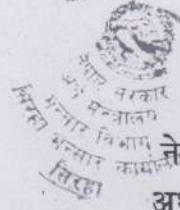 नेपाल सरकार
अर्थ मन्त्रालय
भन्सार विभाग
सिरहा भन्सार कार्यालय
सिरहा
ने
अ